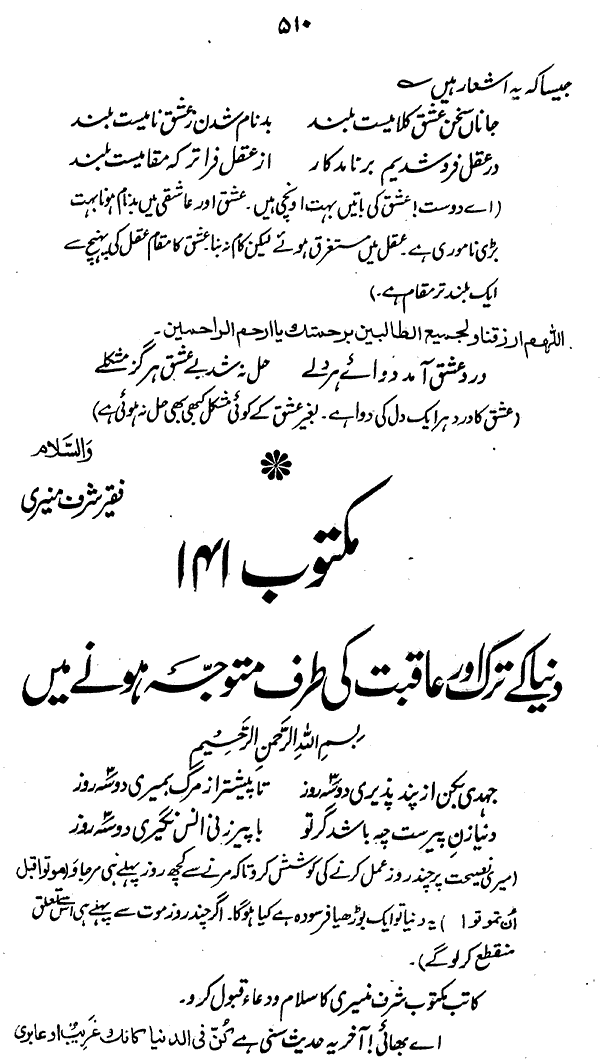 ۵۱۰
جیسا کہ یہ اشعار ہیں ؎
جاناں سخن عشق کلامیست بلند بدنام شدن ز عشق نامیست بلند
در عقل فرو شدیم برنامد کار از عقل فراتر کہ مقامیست بلند
(اے دوست! عشق کی باتیں بہت اونچی ہیں۔ عشق اور عاشقی میں بدنام ہونا بہت
بڑی ناموری ہے۔ عقل میں مستغرق ہوئے لیکن کام نہ بنا عشق کا مقام عقل کی پہنچ سے
ایک بلند تر مقام ہے۔)
اللھم ارزقنا ولجمیع الطالبین برحمتك یا ارحم الراحمین۔
درد عشق آمد دوائے ہر دلے حل نہ شد بے عشق ہرگز مشکلے
(عشق کا درد ہر ایک دل کی دوا ہے۔ بغیر عشق کے کوئی مشکل کبھی بھی حل نہ ہوئی ہے)
والسّلام
فقیر شرف منیری
مکتوب ۱۴۱
دنیا کے ترک اور عاقبت کی طرف متوجّہ ہونے میں
بِسمِ اللهِ الرَّحمٰنِ الرَّحِيْمِ
جہدی بکن از پند پذیری دوسہ روز تا پیشتر از مرگ بمیری دوسہ روز
دنیا زنِ پیرست چہ باشد گر تو با پیر زنی انس نگیری دوسہ روز
(میری نصیحت پر چند روز عمل کرنے کی کوشش کرو تاکہ مرنے سے کچھ روز پہلے ہی مر جاؤ (موتوا قبل
اَن تموتوا) یہ دنیا تو ایک بوڑھیا فرسودہ ہے کیا ہوگا۔ اگر چند روز موت سے پہلے ہی اس سے تعلق
منقطع کر لو گے)۔
کاتب مکتوب شرف منیری کا سلام و دعاء قبول کرو۔
اے بھائی! آخر یہ حدیث سنی ہے کُنْ فی الدنیا کانك غَرِیْبٌ او عابری